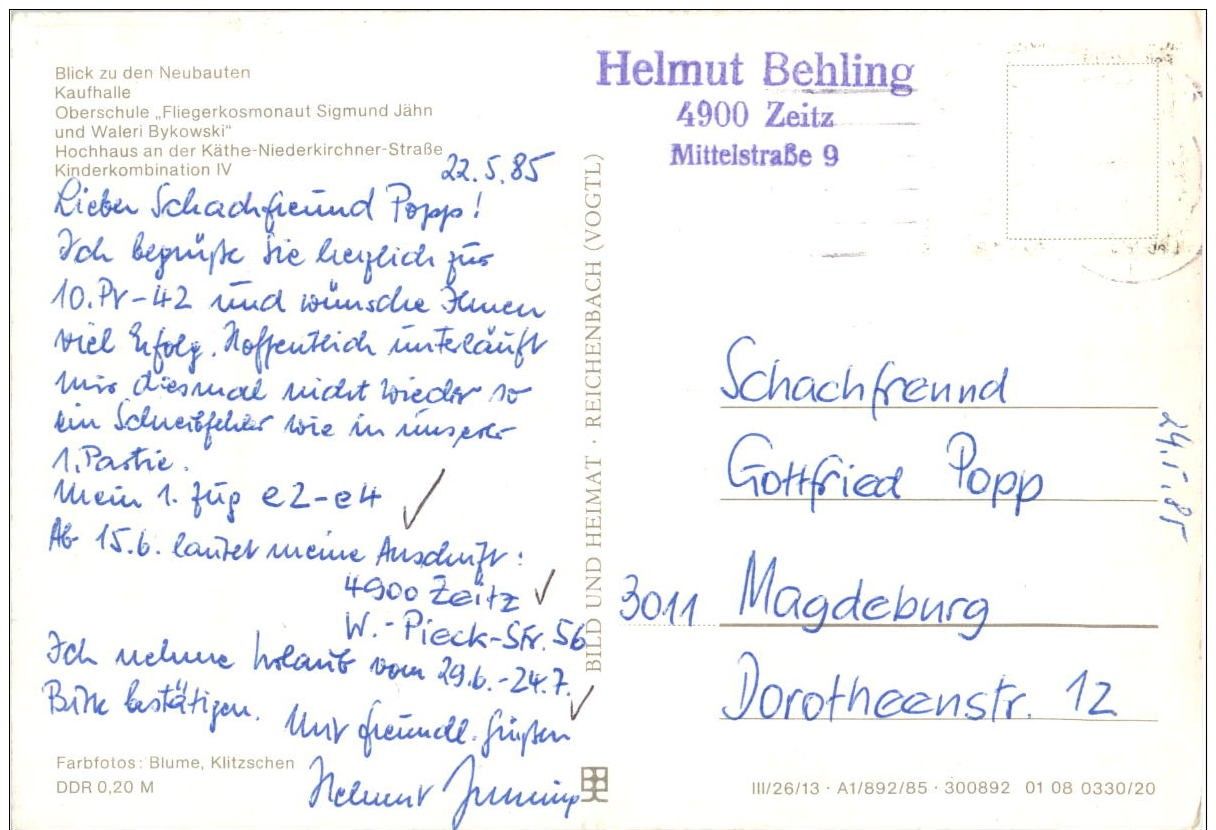 Blick zu den Neubauten
Kaufhalle
Oberschule „Fliegerkosmonaut Sigmund Jähn
und Waleri Bykowski“
Hochhaus an der Käthe-Niederkirchner-Straße
Kinderkombination IV
22.5.85
Lieber Schachfreund Popp!
Ich begrüße Sie herzlich zur
10.Pr-42 und wünsche Ihnen
viel Erfolg. Hoffentlich unterläuft
mir diesmal nicht wieder so
ein Schreibfehler wie in unserer
1. Partie.
Mein 1. Zug e2-e4
Ab 15.6. lautet meine Anschrift:
4900 Zeitz
W.-Pieck-Str. 56
Ich nehme Urlaub vom 29.6.-24.7.
Bitte bestätigen.
Mit freundl. Grüßen
Helmut
Farbfotos: Blume, Klitzschen
DDR 0,20 M
BILD UND HEIMAT · REICHENBACH (VOGTL)
Helmut Behling
4900 Zeitz
Mittelstraße 9
Schachfreund
Gottfried Popp
3011 Magdeburg
Dorotheenstr. 12
24.5.85
III/26/13 · A1/892/85 · 300892 01 08 0330/20